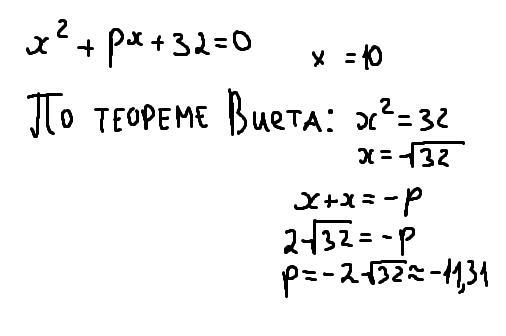 x² + px + 32 = 0    x = 10
По теореме Виета: x² = 32
x = √32
x + x = -p
2√32 = -p
p = -2√32 ≈ -11,31